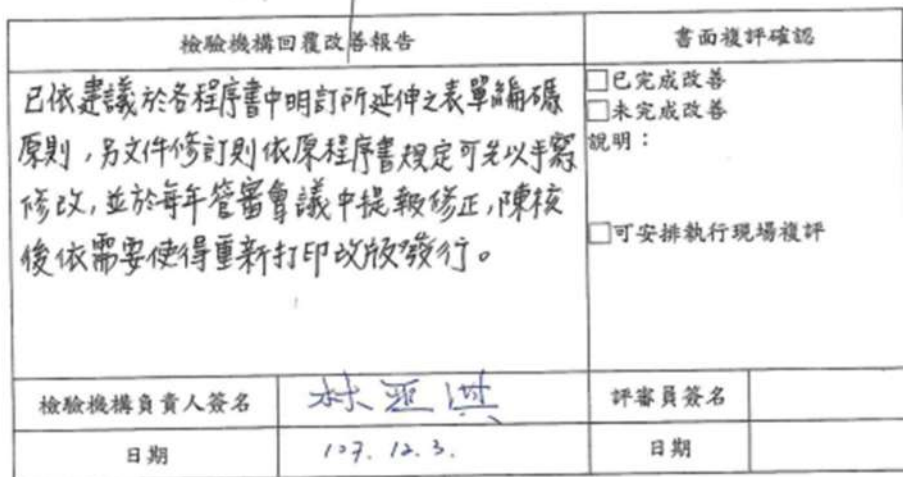 檢驗機構回覆改善報告
書面複評確認
已依建議於各程序書中明訂所延伸之表單編碼
原則，另文件修訂則依原程序書規定可先以手寫
修改，並於每年管審會議中提報修正，陳核
後依需要使得重新打印改版發行。
□已完成改善
□未完成改善
說明：
□可安排執行現場複評
檢驗機構負責人簽名
林
評審員簽名
日期
107. 12. 3.
日期